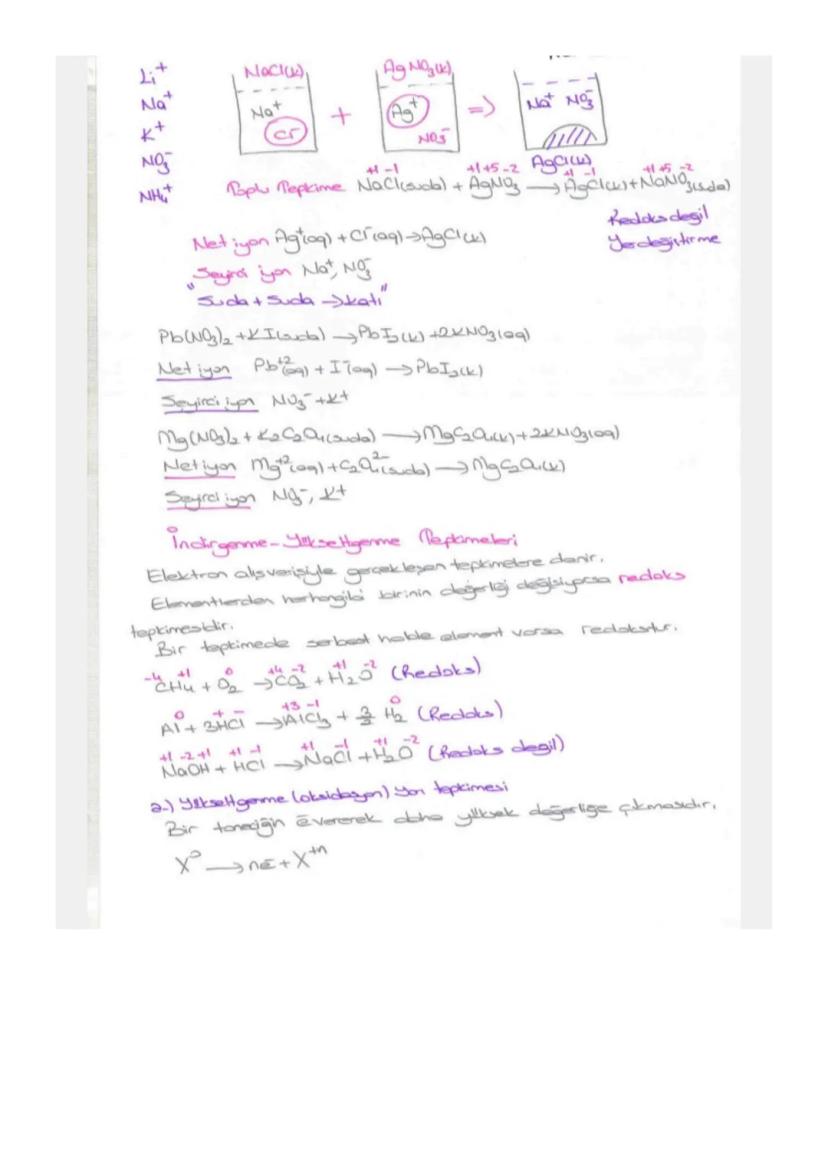 Li⁺
Na⁺
K⁺
NO₃⁻
NH₄⁺
NaCl(k) AgNO₃(k)
Na⁺ Cl⁻ + Ag⁺ NO₃⁻ => Na⁺ NO₃⁻
AgCl(k)
+1 -1 +1 +5 -2 +1 -1 +1 +5 -2
Toplu Tepkime NaCl(suda) + AgNO₃ → AgCl(k) + NaNO₃(suda)
Redoks değil
Yer değiştirme
Net iyon Ag⁺(aq) + Cl⁻(aq) → AgCl(k)
Seyirci iyon Na⁺, NO₃⁻
"Suda + Suda → katı"
Pb(NO₃)₂ + KI(suda) → PbI₂(k) + 2KNO₃(aq)
Net iyon Pb⁺²(aq) + I⁻(aq) → PbI₂(k)
Seyirci iyon NO₃⁻ + K+
Mg(NO₃)₂ + K₂C₂O₄(suda) → MgC₂O₄(k) + 2KNO₃(aq)
Net iyon Mg⁺²(aq) + C₂O₄²⁻(suda) → MgC₂O₄(k)
Seyirci iyon NO₃⁻, K+
İndirgenme-Yükseltgenme Tepkimeleri
Elektron alışverişiyle gerçekleşen tepkimelere denir.
Elementlerden herhangibi birinin değerliği değişiyorsa redoks
tepkimesidir.
Bir tepkimede serbest halde element varsa redokstur.
-4 +1 0 +4 -2 +1 -2
CH₄ + O₂ → CO₂ + H₂O (Redoks)
0 + - +3 -1 0
Al + 3HCl → AlCl₃ + 3/2 H₂ (Redoks)
+1 -2 +1 +1 -1 +1 -1 +1 -2
NaOH + HCl → NaCl + H₂O (Redoks değil)
a-) Yükseltgenme (oksidasyon) yarı tepkimesi
Bir taneciğin ē vererek daha yüksek değerliğe çıkmasıdır.
X⁰ → nē + X⁺ⁿ